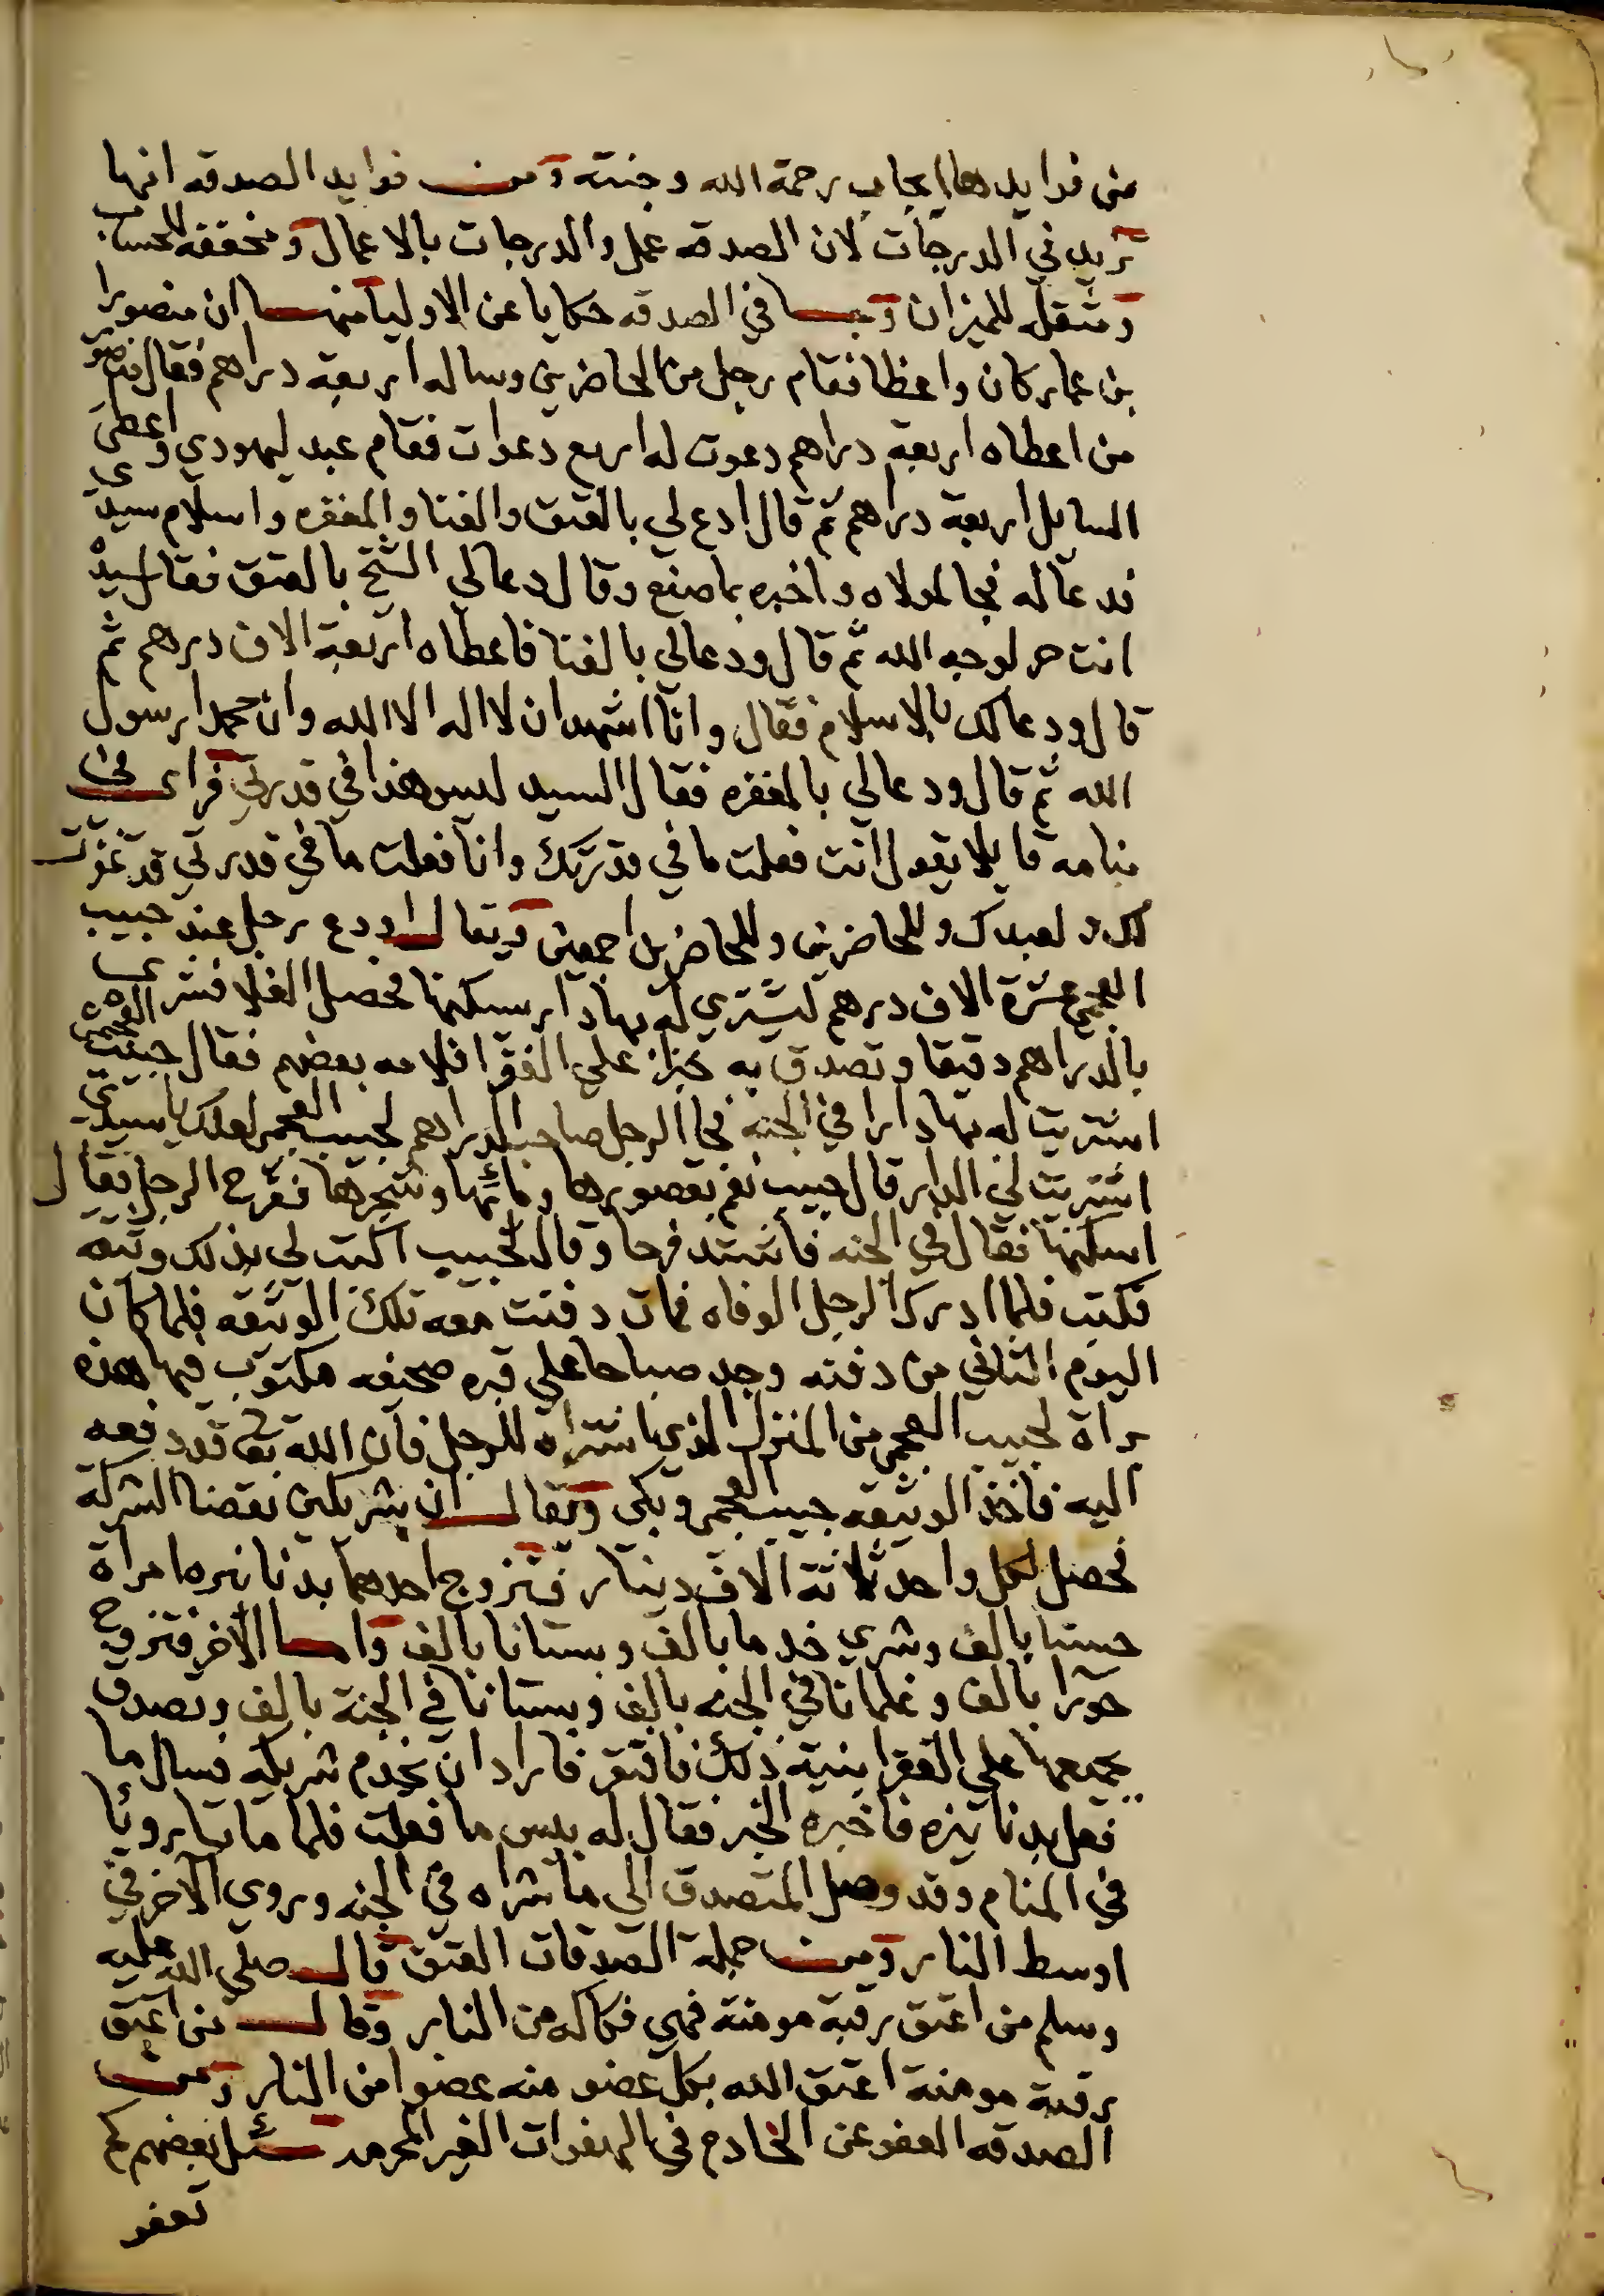 من فوايدها ايجاب رحمة الله وجنته ومن فوايد الصدقه انها
تزيد في الدرجات لان الصدقه عمل والدرجات بالاعمال ومخففه للحساب
ومثقله للميزان وجا في الصدقه حكايا عن الاوليا منها ان منصورا
بن عمار كان واعظا فقام رجل من الحاضرين وساله اربعة دراهم فقال منصور
من اعطاه اربعة دراهم دعوت له اربع دعوات فقام عبد ليهودي واعطى
السايل اربعة دراهم ثم قال ادع لي بالعتق والغنا والمغفره واسلام سيدي
فدعا له فجا لمولاه واخبره بما صنع وقال دعا لي الشيخ بالعتق فقال سيده
انت حر لوجه الله ثم قال ودعا لي بالغنا فاعطاه اربعة الاف درهم ثم
قال ودعا لك بالاسلام فقال وانا اشهد ان لا اله الا الله وان محمدا رسول
الله ثم قال ودعا لي بالمغفره فقال السيد ليس هذا في قدرتي فراى في
منامه قايلا يقول انت فعلت ما في قدرتك وانا فعلت ما في قدرتي قد غفرت
لك ولعبدك وللحاضرين وللحاضرين اجمعين ويقال اودع رجل عند حبيب
العجمي عشرة الاف درهم ليشتري له بها دار يسكنها فحصل الغلا فشرى
بالدراهم دقيقا وتصدق به خبزا علي الفقرا فلامه بعضهم فقال حبيب العجمي
اشتريت له بها دارا في الجنه فجا الرجل صاحب الدراهم لحبيب العجمي لعلك يا سيدي
اشتريت لي الدار قال حبيب نعم بقصورها ومائها وشجرها ففرح الرجل فقال
اسكنها فقال في الجنه فاشتد فرحا وقال لحبيب اكتب لي بذلك وثيقه
فكتب فلما ادرك الرجل الوفاه فمات دفنت معه تلك الوثيقه فلما كان
اليوم الثاني من دفنه وجد صباحا علي قبره صحيفه مكتوب فيها هذه
براة لحبيب العجمي من المنزل الذي اشتراه للرجل فان الله تعالى قد دفعه
اليه فاخذ الوثيقه حبيب العجمي وبكى ويقال ان شريكين نقضا الشركة
فحصل لكل واحد ثلاثة الاف دينار فتزوج احدهما بدنانيرها مراة
حسنا بالف وشرى خدما بالف وبستانا بالف واما الاخر فتزوج
حورا بالف وغلمانا في الجنه بالف وبستانا في الجنة بالف وتصدق
بجميعها علي الفقرا بنية ذلك فافتقر فاراد ان يخدم شريكه فسال ما
فعل بدنانيره فاخبره الخبر فقال له بيس ما فعلت فلما ماتا رويا
في المنام وقد وصل المتصدق الي ما شراه في الجنه وروي الاخر في
اوسط النار ومن جملة الصدقات العتق قال صلي الله عليه
وسلم من اعتق رقبة مومنة فهي فكاكه من النار وقال من اعتق
رقبة مومنة اعتق الله بكل عضو منه عضوا من النار ومن
الصدقه العفو عن الخادم في الهفوات الغير المحرمه سئل بعضهم كم
تعفو